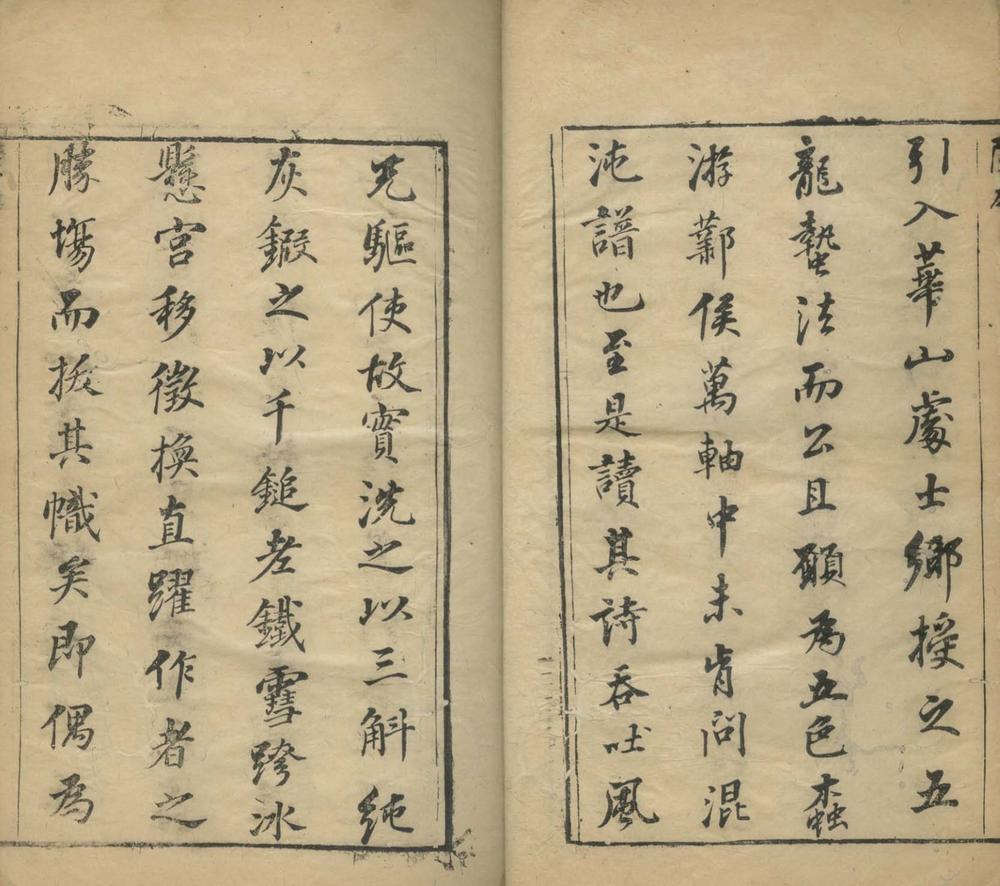 引入華山處士鄉授之五
龍蟄法而公且願為五色蠹
游鄴侯萬軸中未肯問混
沌譜也至是讀其詩吞吐風
兕驅使故實洗之以三斛純
灰鍛之以千鎚老鐵雪跨冰
懸宮移徵換直躍作者之
勝場而拔其幟矣即偶為